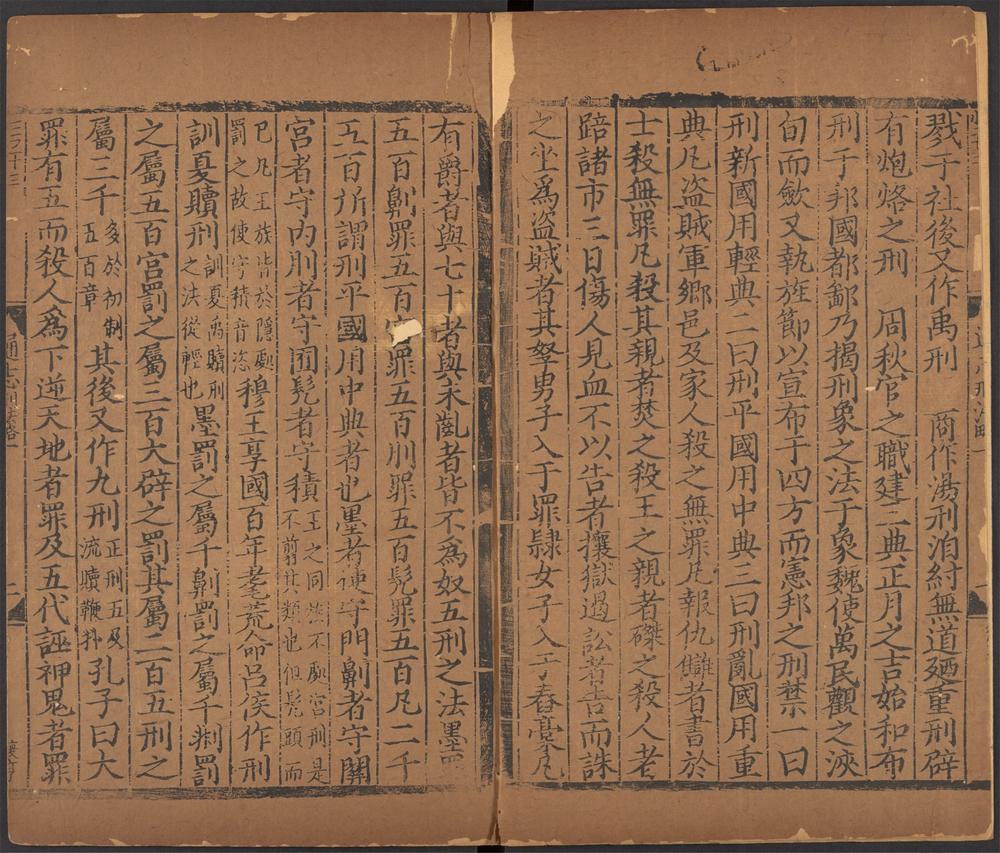 戮于社後又作禹刑 商作湯刑洎紂無道廼重刑辟
有炮烙之刑 周秋官之職建三典正月之吉始和布
刑于邦國都鄙乃揭刑象之法于象魏使萬民觀之浹
旬而斂又執旌節以宣布于四方而憲邦之刑禁一曰
刑新國用輕典二曰刑平國用中典三曰刑亂國用重
典凡盜賊軍鄉邑及家人殺之無罪凡報仇讎者書於
士殺無罪凡殺其親者焚之殺王之親者磔之殺人者
踣諸市三日傷人見血不以告者攘獄遏訟者告而誅
之坐為盜賊者其孥男子入于罪隸女子入于舂槀凡
有爵者與七十者與未齓者皆不為奴五刑之法墨罪
五百劓罪五百宮罪五百刖罪五百髡罪五百凡二千
五百所謂刑平國用中典者也墨者使守門劓者守關
宮者守內刖者守囿髡者守積王之同族不處宮刑是不翦其類也但髡頭而
已凡王族皆於隱處罰之故使守積音恣穆王享國百年耄荒命呂侯作刑
訓夏贖刑訓夏禹贖刑之法從輕也墨罰之屬千劓罰之屬千剕罰
之屬五百宮罰之屬三百大辟之罰其屬二百五刑之
屬三千多於初制五百章其後又作九刑正刑五及流贖鞭扑孔子曰大
罪有五而殺人為下逆天地者罪及五代誣神鬼者罪
通志刑法畧一